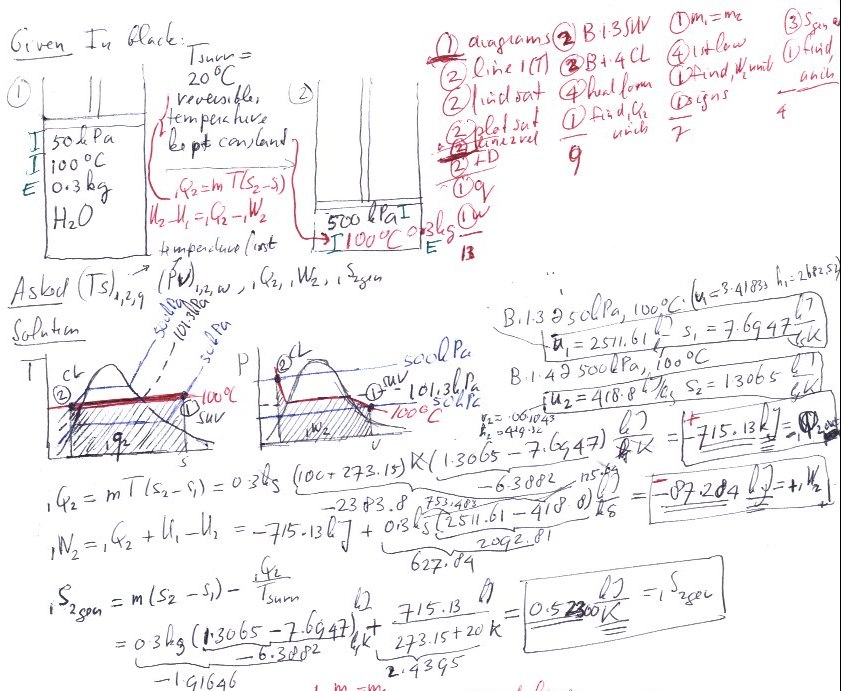 Given In black:
Tsurr =
20°C
reversible,
temperature
kept constant
①
I 50 kPa
I 100°C
E 0.3 kg
H₂O
₁Q₂ = mT(s₂-s₁)
U₂-U₁ = ₁Q₂ - ₁W₂
②
500 kPa I
I 100°C 0.3kg
E
① diagrams
② line 1(T)
② lind sat
② plot sat
② FD
① q
① w
13
② B.1.3 SUV
② B.1.4 CL
④ heal form
① find, Q₂
unich
9
① m₁=m₂
④ 1st law
① find, W₂ unit
① signs
7
③ Sgen
① find,
unich
4
Asked (Ts)₁,₂,q (Pv)₁,₂,w, ₁Q₂, ₁W₂, ₁S₂gen
Solution
T
CL
②
① SUV
100°C
₁q₂
s
500kPa
101.3kPa
50kPa
P
② CL
① SUV
500kPa
101.3kPa
50kPa
100°C
₁W₂
v
B.1.3 @ 50kPa, 100°C. (v₁=3.41833 h₁=2682.52)
u₁ = 2511.61 kJ/kg s₁ = 7.6947 kJ/kgK
B.1.4 @ 500kPa, 100°C
u₂ = 418.8 kJ/kg s₂ = 1.3065 kJ/kgK
v₂ = .001043
h₂ = 419.32
₁Q₂ = mT(s₂-s₁) = 0.3kg (100+273.15) K (1.3065 - 7.6947) kJ/kgK = -715.13 kJ = -₁Q₂out
-6.3882
-2383.8
₁W₂ = ₁Q₂ + U₁ - U₂ = -715.13kJ + 0.3kg (2511.61 - 418.8) kJ/kg = -87.284 kJ = +₁W₂
753.483 125.64
2092.81
627.84
₁S₂gen = m(s₂-s₁) - ₁Q₂/Tsurr
= 0.3kg (1.3065 - 7.6947) kJ/kgK + 715.13 kJ / 273.15+20 K = 0.52300 kJ/K = ₁S₂gen
-6.3882
-1.91646
2.4395